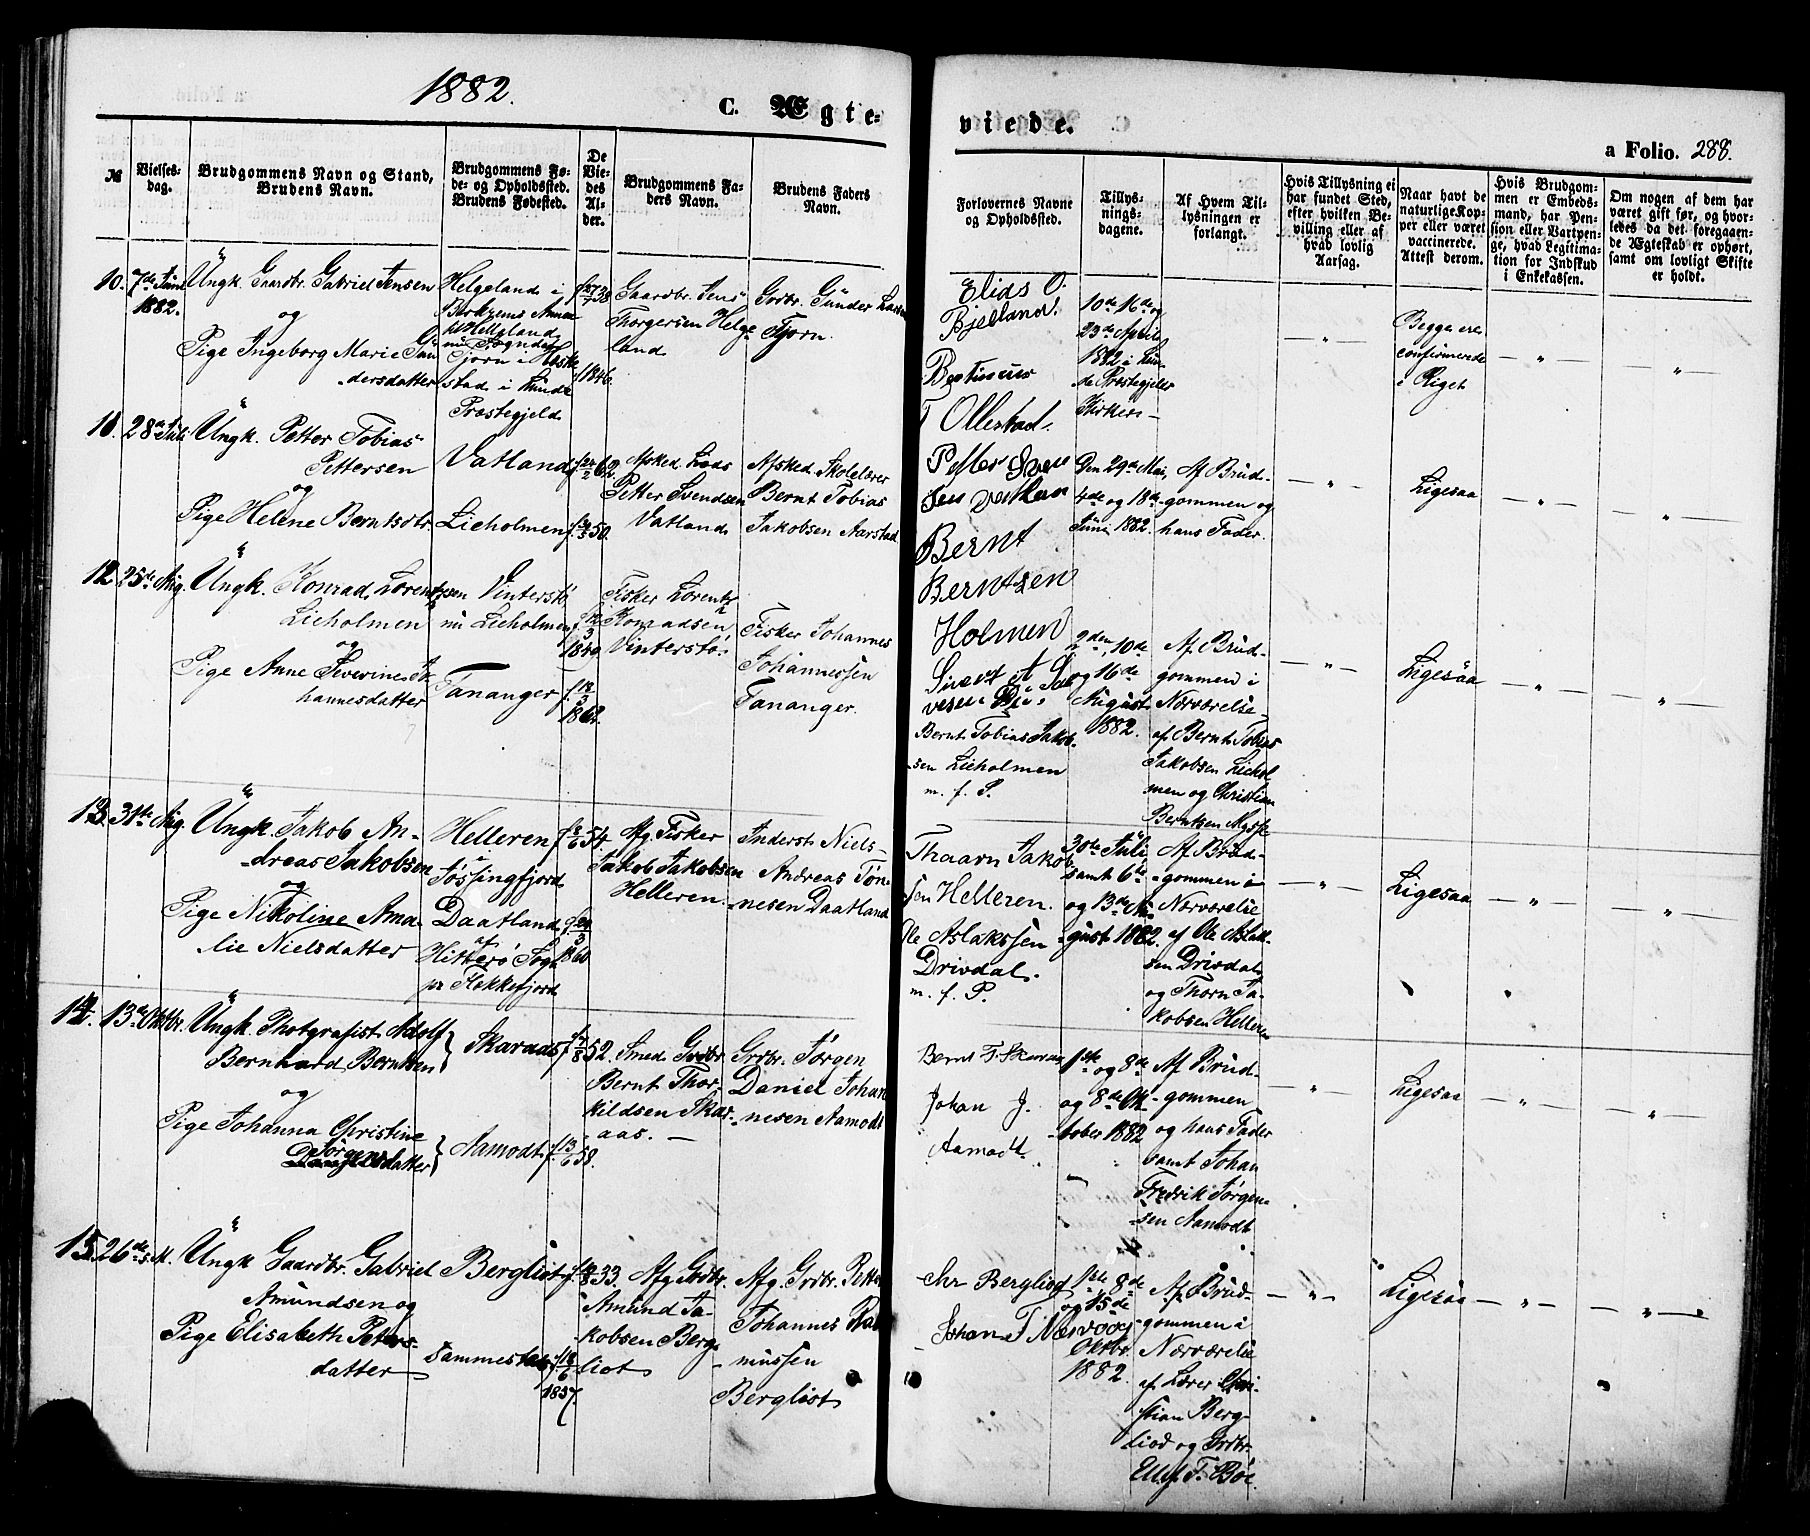 1882.
C. Ægte-
viede.
a Folio. 288.
№
Vielses-
dag.
Brudgommens Navn og Stand,
Brudens Navn.
Brudgommens Fø-
de- og Opholdsted.
Brudens Fødested.
De
Vie-
des
Al-
der.
Brudgommens Fa-
ders Navn.
Brudens Faders
Navn.
Forlovernes Navne
og Opholdssted.
Tillys-
nings-
dagene.
Af Hvem Til-
lysningen er
forlangt.
Hvis Tillysning ei
har fundet Sted,
efter hvilken Be-
villing eller af
hvad lovlig
Aarsag.
Naar havt de
naturlige Kop-
per eller været
vaccinerede.
Attest derom.
Hvis Brudgom-
men er Embeds-
mand, har Pen-
sion eller Vartpen-
ge, hvad Legitima-
tion for Indskud
i Enkekassen.
Om nogen af dem har
været gift før, og hvor-
ledes da det foregaaen-
de Ægteskab er ophørt,
samt om lovligt Skifte
er holdt.
10.
7de Juni
1882.
Ungk. Gaardbr. Gabriel Jensen
og
Pige Ingeborg Marie Gün
dersdatter
Helgeland i
Birkrems Annex
til Helleland
Tjørn i Heske
stad i Lunde
Præstegjeld
38
1846.
Gaardbr. Jens
Thorgersen Helge
land
Grdbr. Günder
Tjørn.
Elias O.
Bjelland.
T Ollestad.
10de 16de og
23de April
1882 i Lun
de Præstegjelds
Kirker
Begge ere
confirmerede
i Riget
11.
28de Juli
Ungk. Petter Tobias
Pettersen
og
Pige Helene Berntsdtr.
Vatland
Lieholmen
f. 62
f. 50.
Afsked. Lods
Petter Svendsen
Vatland
Afsked. Skolelærer
Bernt Tobias
Jakobsen Aarstad
Petter Sven
sen
Bernt
Berntsen
Holmen
Den 29de Mai,
4de og 18de
Juni 1882.
Af Brud-
gommen og
hans Fader.
Ligesaa
12.
25de Aug.
Ungk. Konrad Lorentzsen
Lieholmen
og
Pige Anne Severine Jo
hannesdatter
Vinterstø
nu Lieholmen
Tananger
f.
f. 12/3
1862.
Fisker Lorentz
Konradsen
Vinterstø.
Fisker Johannes
Johannessen
Tananger.
Bernt Tobias Jakob-
sen Lieholmen
m. f. P.
2den, 10de
og 16de
August
1882.
Af Brud-
gommen i
Nærværelse
af Bernt Tobias
Jakobsen Liehol
men og Christian
Berntsen
Ligesaa
13.
31te Aug.
Ungk. Jakob An-
dreas Jakobsen
og
Pige Nikoline Ama-
lie Nielsdatter
Helleren
i
Jøssingfjord
Daatland
af
Hitterø Sogn
pr Flekkefjord
54.
1860
Afg. Fisker
Jakob Jakobsen
Helleren.
Inderst Niels
Andreas Tøn-
nesen Daatland
Thaarn Jakob
sen Helleren.
Ole Aslaksen
Drivdal.
m. f. P.
30te Juli
samt 6te
og 13de Au-
gust 1882.
Af Brud-
gommen i
Nærværelse
af Ole Aslak-
sen Drivdal
og Thorn Ja-
kobsen Helleren
Ligesaa
14.
13de Oktbr.
Ungk. Photgrafist Adolf
Bernhard Berntsen
og
Pige Johanna Christine
Jørgensdatter
Skaraas
Aamodt
52.
f. 13/6 58.
Smed Grdbr
Bernt Thor-
kildsen Skar-
aas.
Grdbr. Jørgen
Daniel Johan
nesen Aamodt
Bernt T. Skaraas
Johan J.
Aamodt
1ste
og 8de
og 8de Ok-
tober 1882
Af Brud-
gommen
og hans Fader
samt Johan
Fredrik Jørgen-
sen Aamodt
Ligesaa
15.
26de s. M.
Ungk Gaardbr. Gabriel
Amundsen og
Pige Elisabeth Peters-
datter
Bergliot
Sammesteds
33.
f. 18/6
1857.
Afg Grdbr.
Amund Ja-
kobsen Berg-
liot
Afg. Grdbr. Petter
Johannes Ras
mussen
Bergliot
Chr Bergliod
Johan T Nærvoog
1ste 8de
og 15de
Oktbr.
1882.
Af Brud-
gommen i
Nærværelse
af Lærer Chri-
stian Berg-
liod og Grdbr.
T. Bøe.
Ligesaa